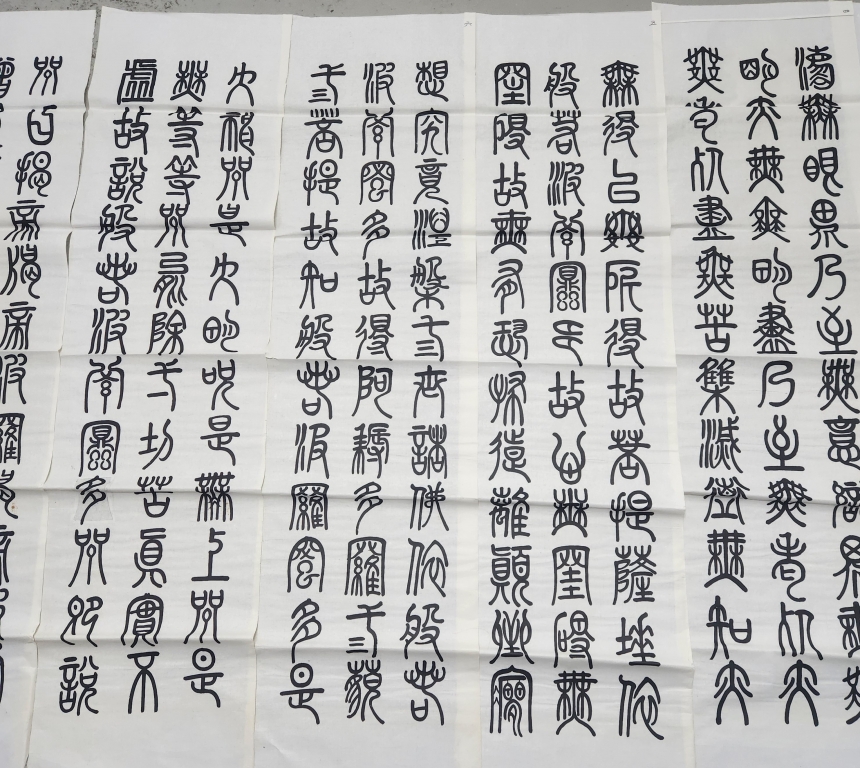 法無眼界乃至無意識界無無
明亦無無明盡乃至無老死亦
無老死盡無苦集滅道無知亦
無得以無所得故菩提薩埵依
般若波羅蜜多故心無罣礙無
罣礙故無有恐怖遠離顛倒夢
想究竟涅槃三世諸佛依般若
波羅蜜多故得阿耨多羅三藐
三菩提故知般若波羅蜜多是
大神咒是大明咒是無上咒是
無等等咒能除一切苦真實不
虛故說般若波羅蜜多咒即說
咒曰揭帝揭帝波羅揭帝